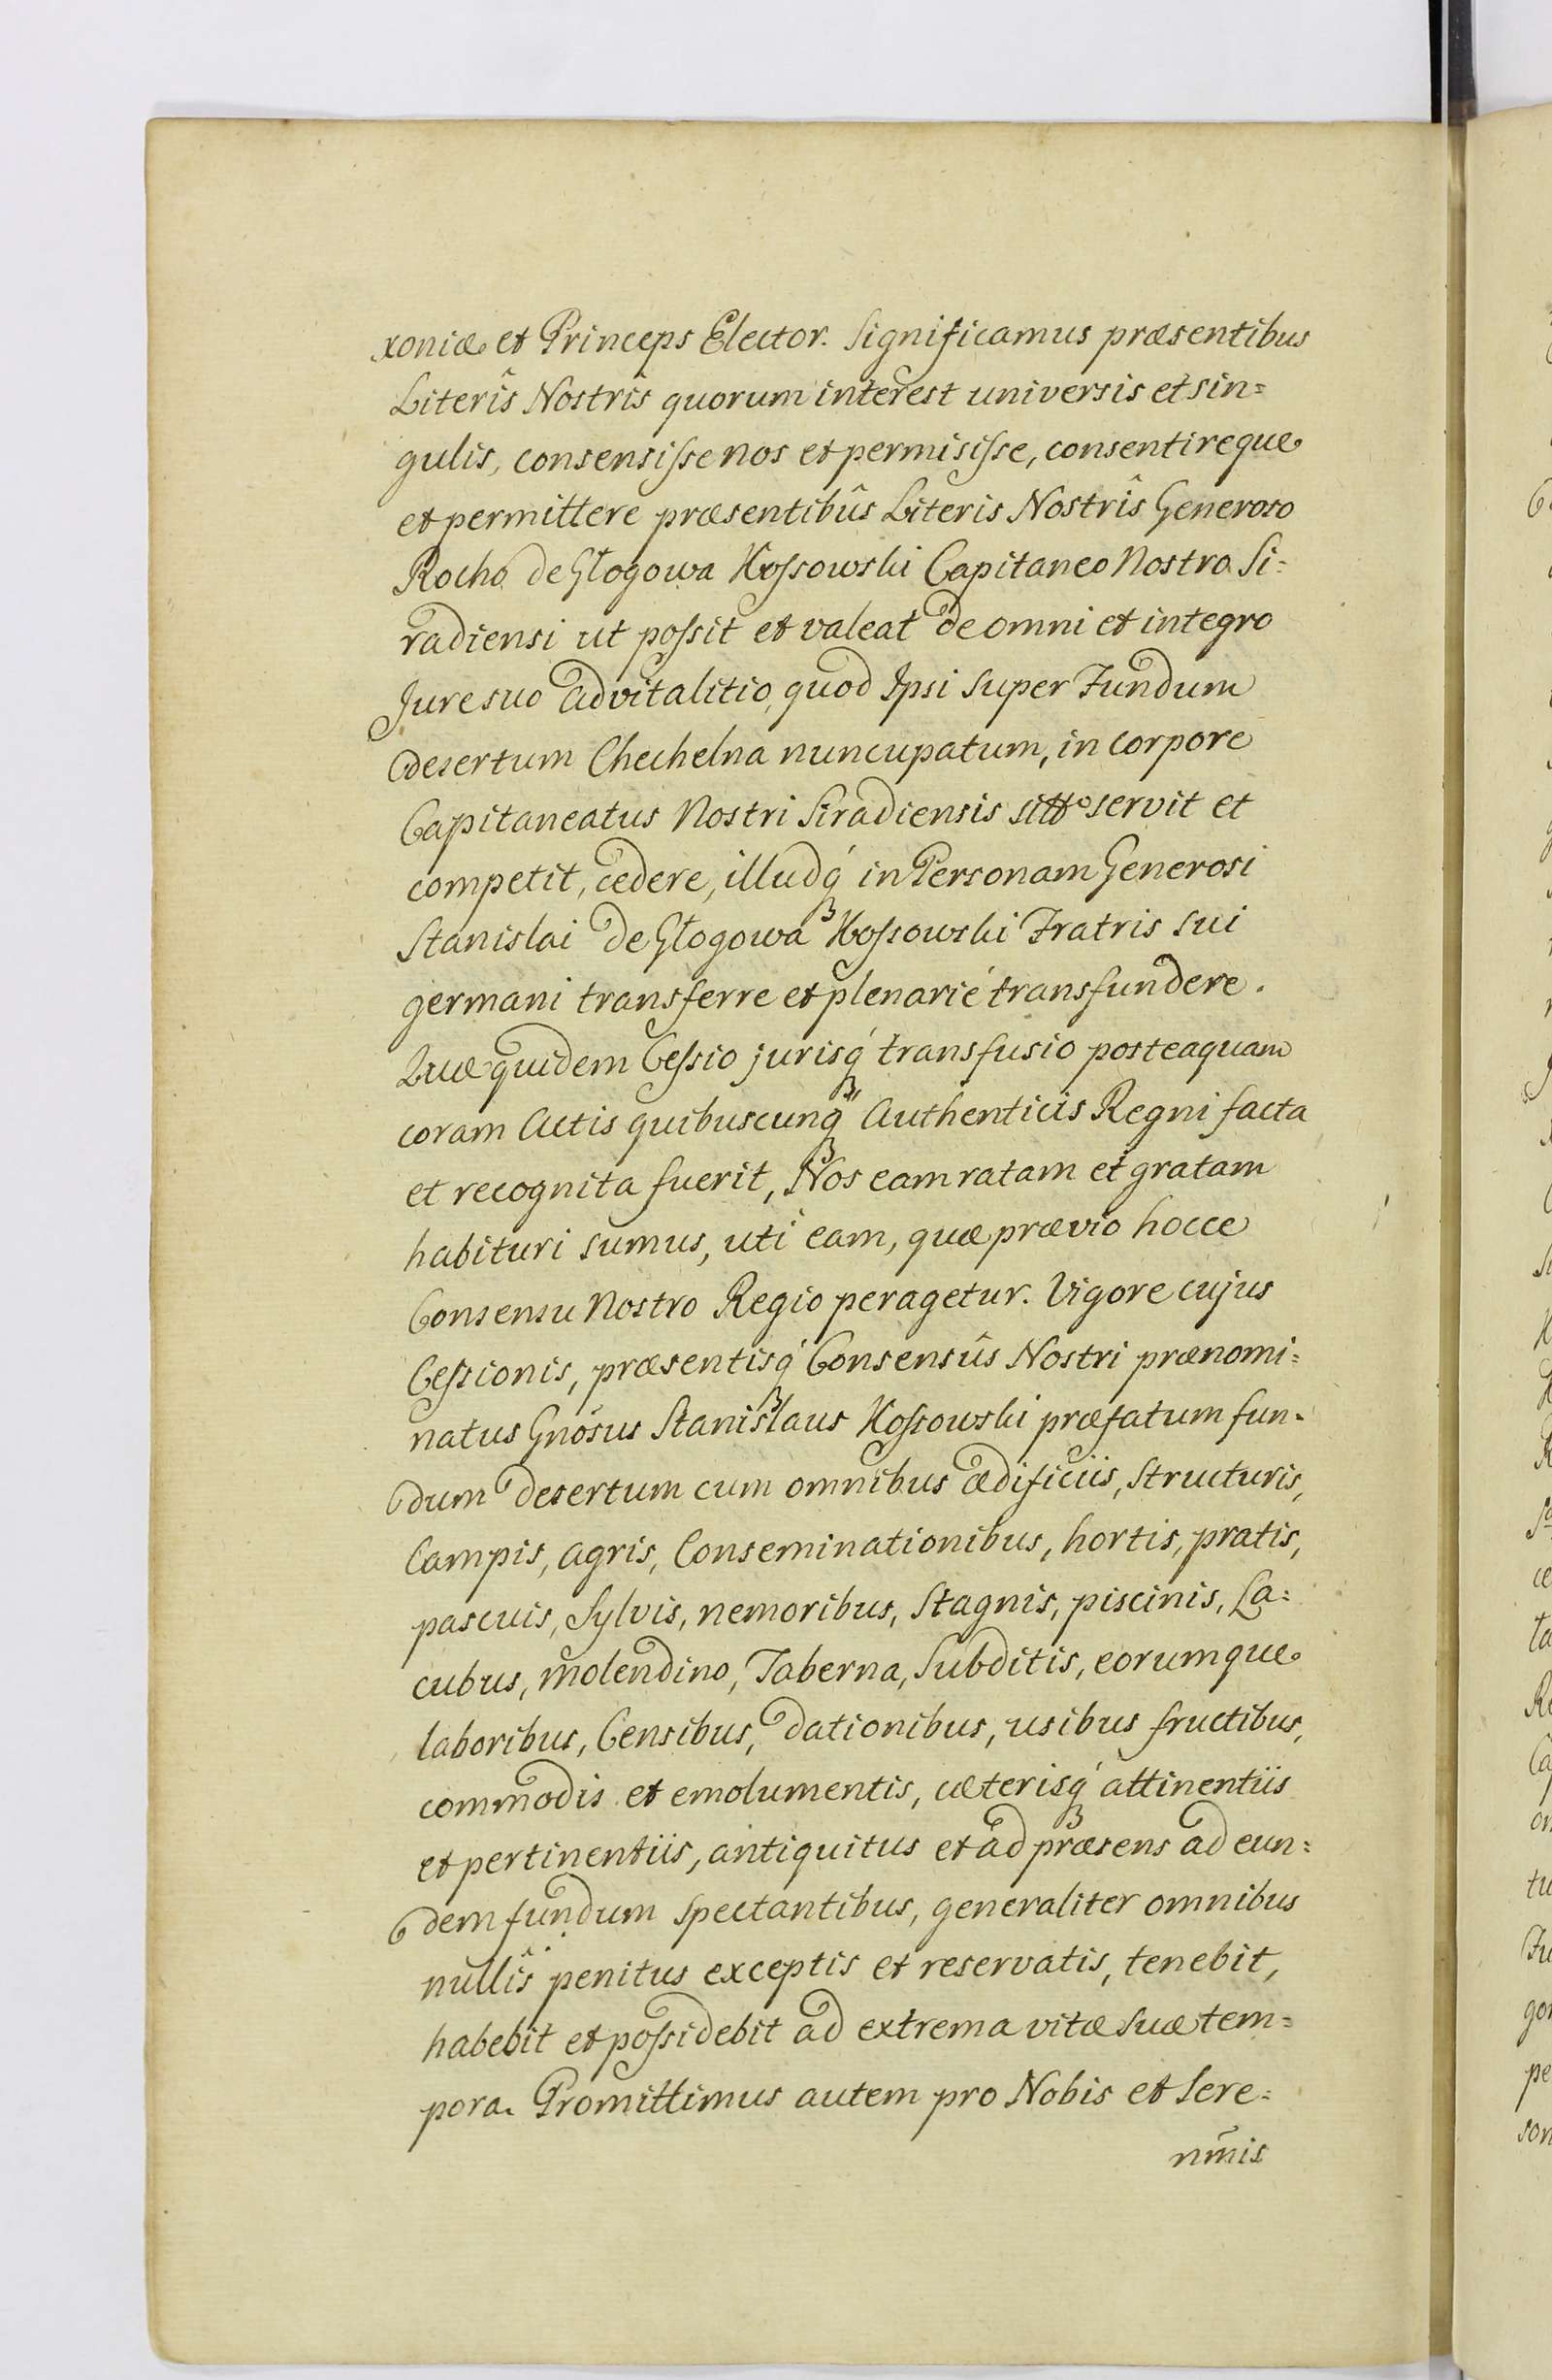 xoniæ et Princeps Elector. Significamus præsentibus
Literîs Nostrîs quorum interest universis et sin=
gulis, consensisse nos et permisisse, consentireque
et permittere præsentibûs Literis Nostrîs Generoso
Rocho de Głogowa Kossowski Capitaneo Nostro Si=
radiensi ut possit et valeat de omni et integro
Jure suo advitalitio, quod Ipsi super Fundum
desertum Chechelna nuncupatum, in corpore
Capitaneatus Nostri Siradiensis sitto servit et
competit, cedere, illudq́ in Personam Generosi
Stanislai de Głogowa Kossowski Fratris sui
germani transferre et plenarié transfundere.
Quæ quidem Cessio jurisq́ transfusio posteaquam
coram Actis quibuscunq́ Authenticis Regni facta
et recognita fuerit, Nos eam ratam et gratam
habituri sumus, uti eam, quæ prævio hocce
Consensu Nostro Regio peragetur. Vigore cujus
Cessionis, præsentisq́ Consensûs Nostri prænomi=
natus Gnosus Stanislaus Kossowski præfatum fun=
dum desertum cum omnibus ædificiis, structuris,
Campis, agris, Conseminationibus, hortis, pratis,
pascuis, Sylvis, nemoribus, Stagnis, piscinis, La=
cubus, molendino, Taberna, Subditis, eorumque
laboribus, Censibus, dationibus, usibus fructibus,
commodis et emolumentis, cæterisq́ attinentiis
et pertinentiis, antiquitus et ad præsens ad eun=
dem fundum spectantibus, generaliter omnibus
nullîs penitus exceptis et reservatis, tenebit,
habebit et possidebit ad extrema vitæ suæ tem=
pora. Promittimus autem pro Nobis et Sere=
nm̃is